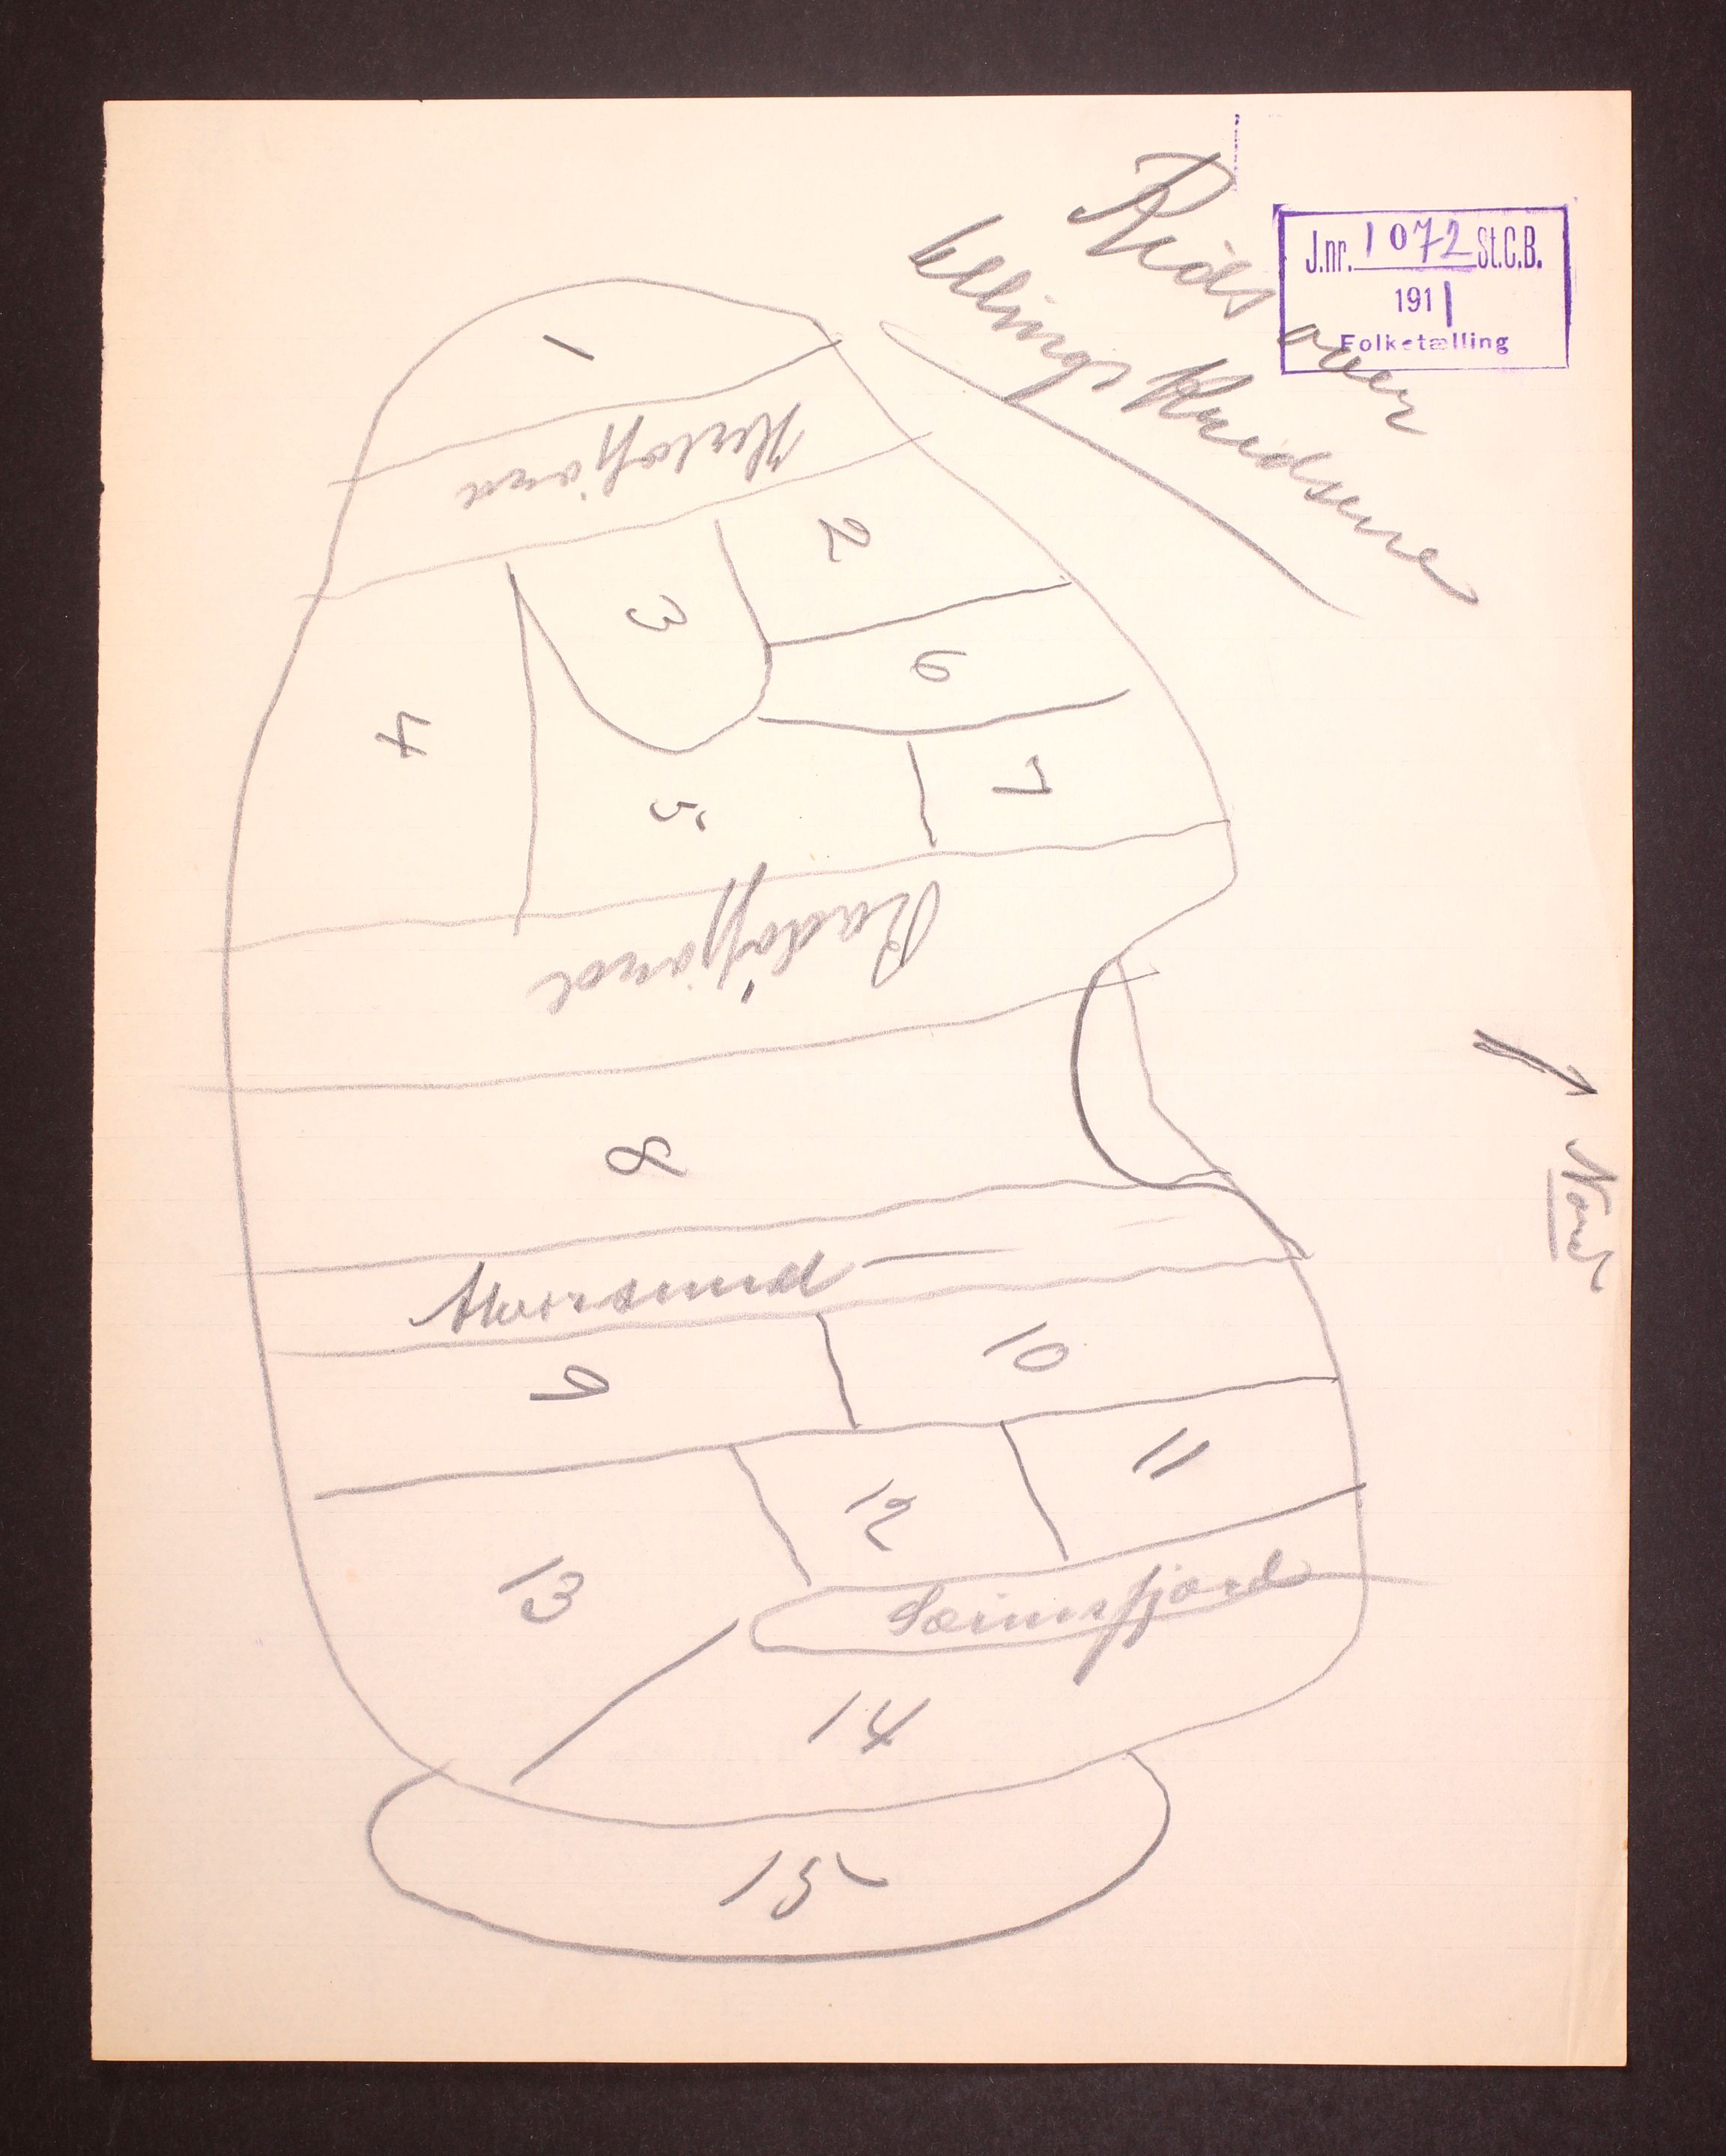 J.nr. 1072 St.C.B.
1911
Folketælling
Rids over
tellingskredsene
1
Herløfjord
2
3
6
4
7
5
Radøfjord
Nord
8
Alversund
10
9
11
12
13
Seimsfjord
14
15